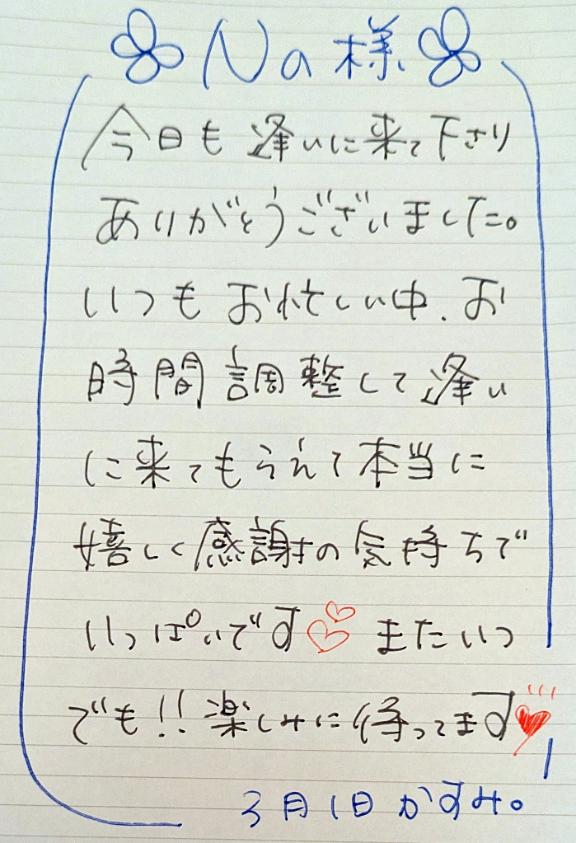 Na様
今日も逢いに来て下さり
ありがとうございました。
いつもお忙しい中、お
時間調整して逢い
に来てもらえて本当に
嬉しく感謝の気持ちで
いっぱいです またいつ
でも!!楽しみに待ってます
3月1日 かすみ。